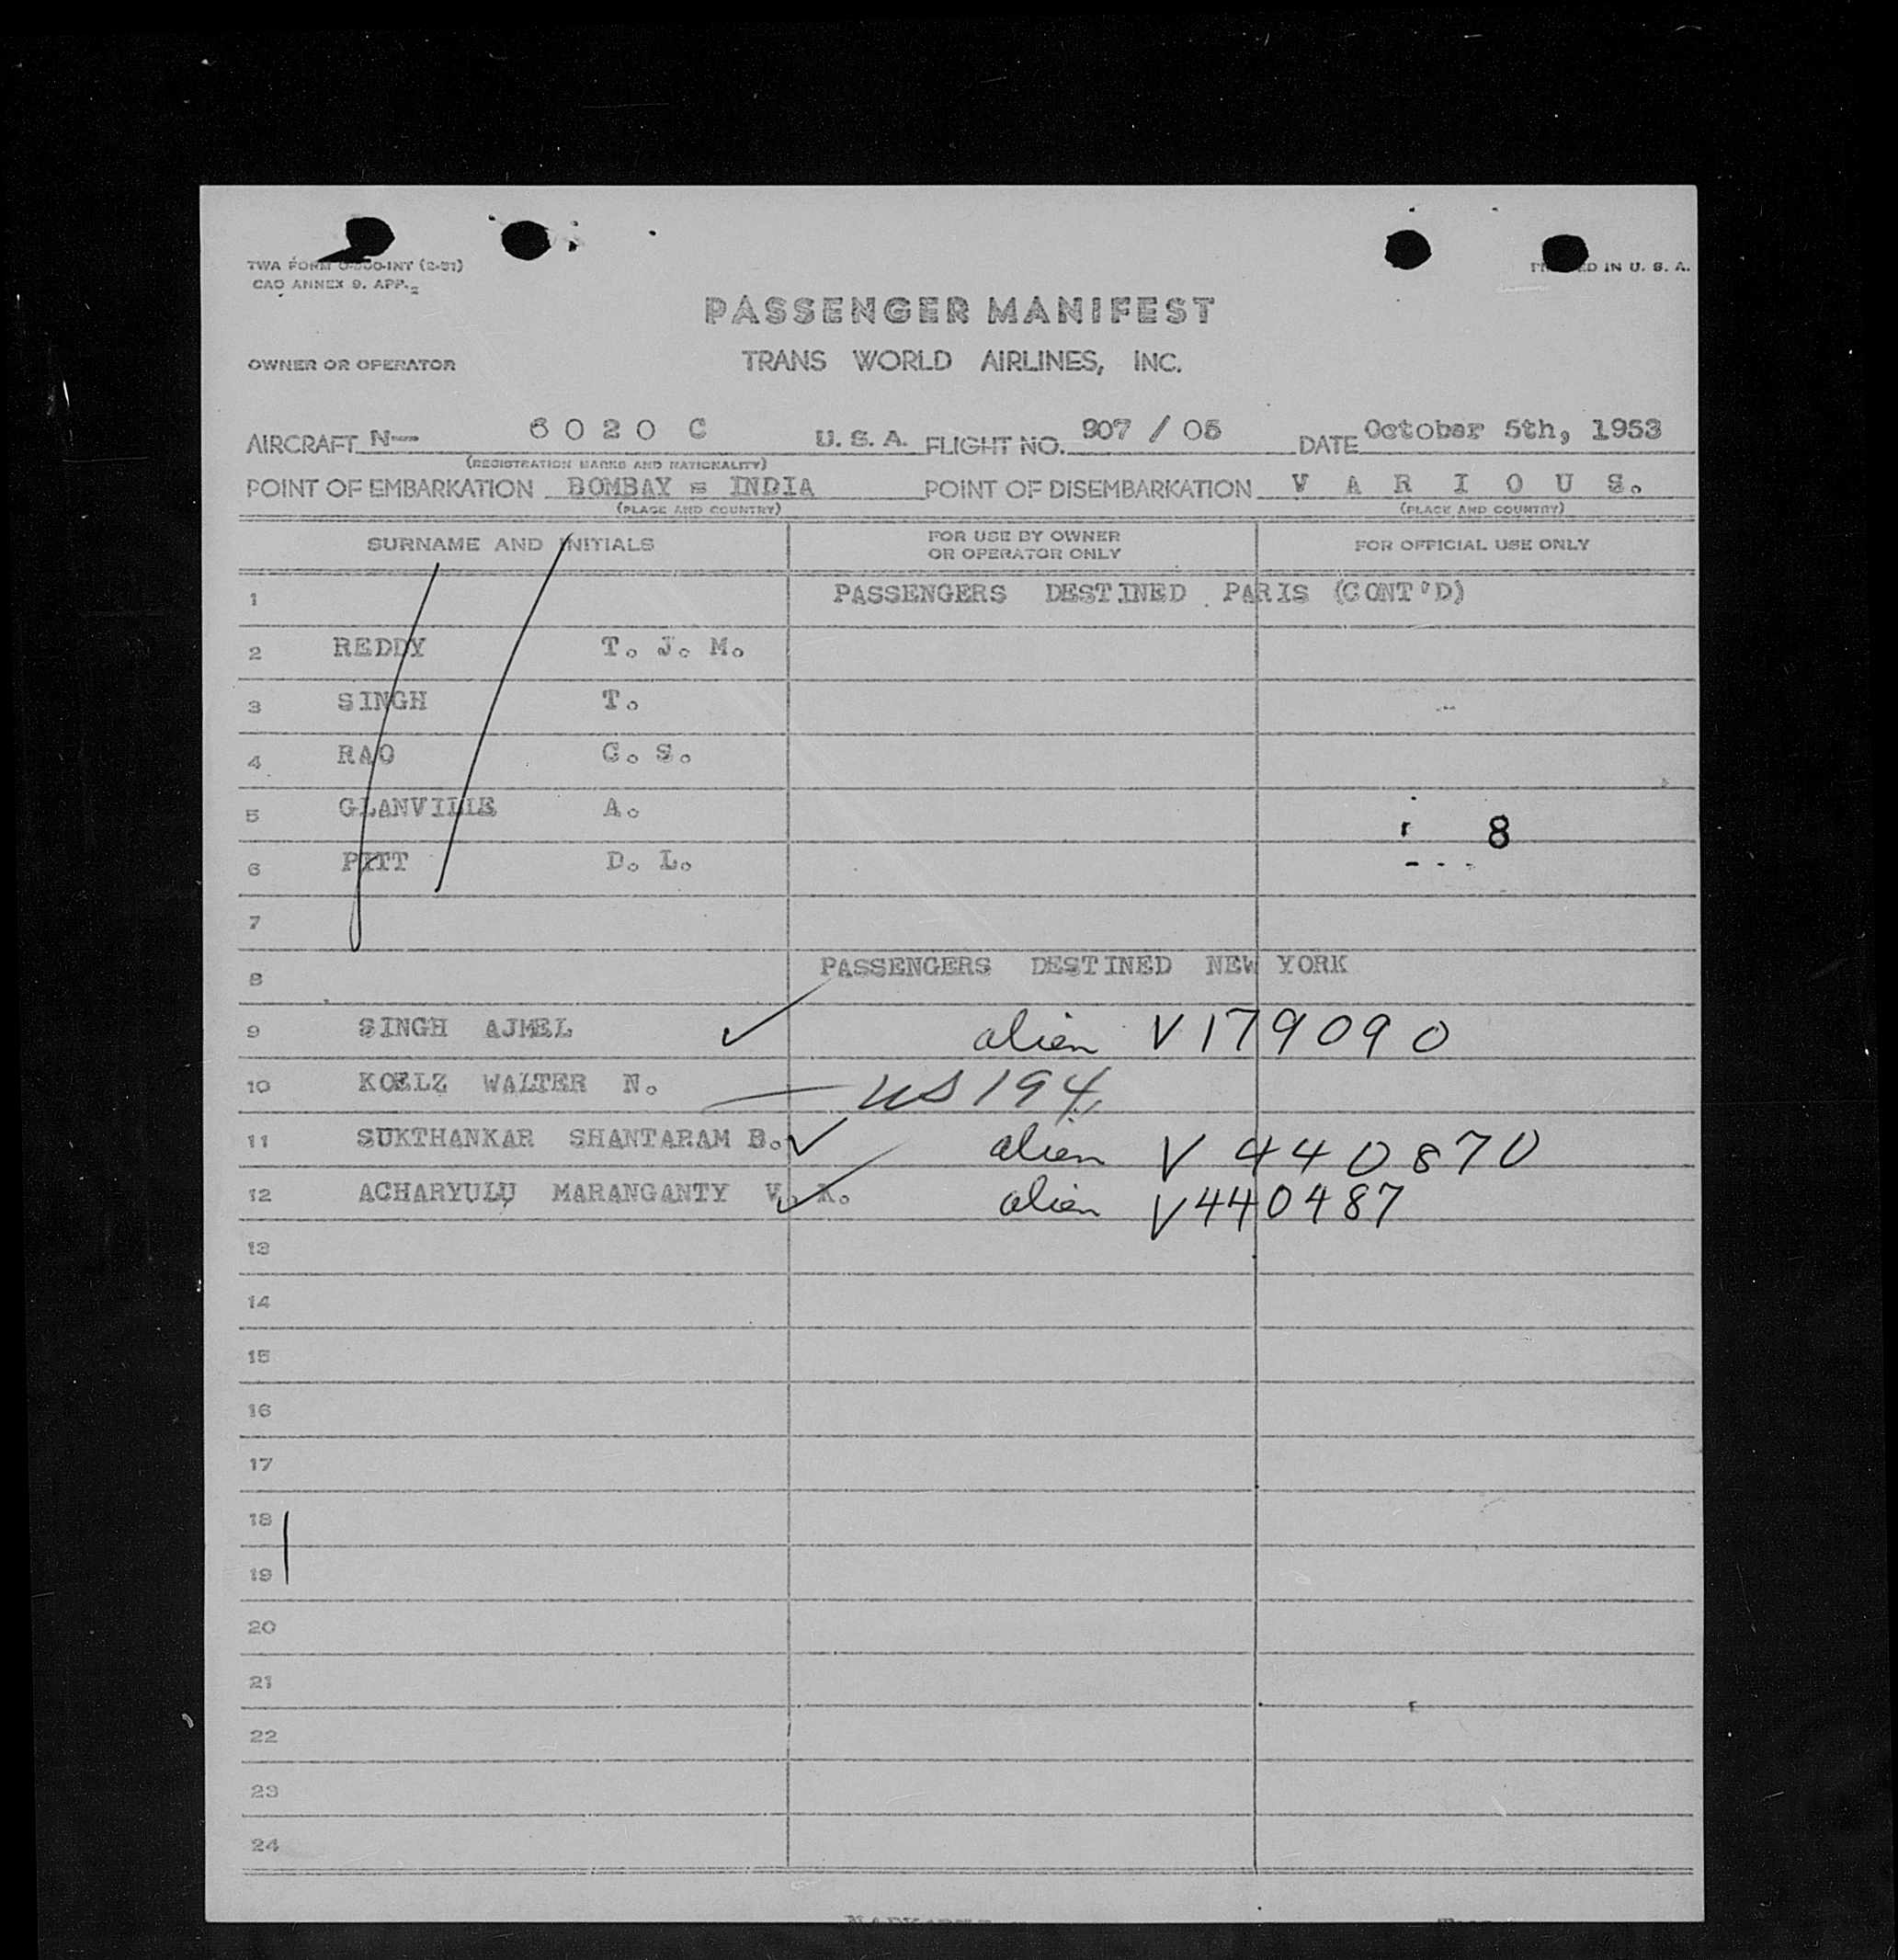 TWA FORM
CAO ANNEX 9. APP. 2
IN U. S. A.
PASSENGER MANIFEST
OWNER OR OPERATOR TRANS WORLD AIRLINES, INC.
AIRCRAFT N— 6020 C U. S. A. FLIGHT NO. 907 / 05 DATE October 5th, 1953
(REGISTRATION MARKS AND NATIONALITY)
POINT OF EMBARKATION BOMBAY = INDIA POINT OF DISEMBARKATION V A R I O U S.
(PLACE AND COUNTRY) (PLACE AND COUNTRY)
SURNAME AND INITIALS FOR USE BY OWNER OR OPERATOR ONLY FOR OFFICIAL USE ONLY
1 PASSENGERS DESTINED PARIS (CONT'D)
2 REDDY T. J. M.
3 SINGH T.
4 RAO G. S.
5 GLANVILLE A. 8
6 PITT D. L.
7
8 PASSENGERS DESTINED NEW YORK
9 SINGH AJMEL ✓ alien V179090
10 KOELZ WALTER N. — US 194
11 SUKTHANKAR SHANTARAM B. ✓ alien V 440870
12 ACHARYULU MARANGANTY V. K. ✓ alien V440487
13
14
15
16
17
18
19
20
21
22
23
24